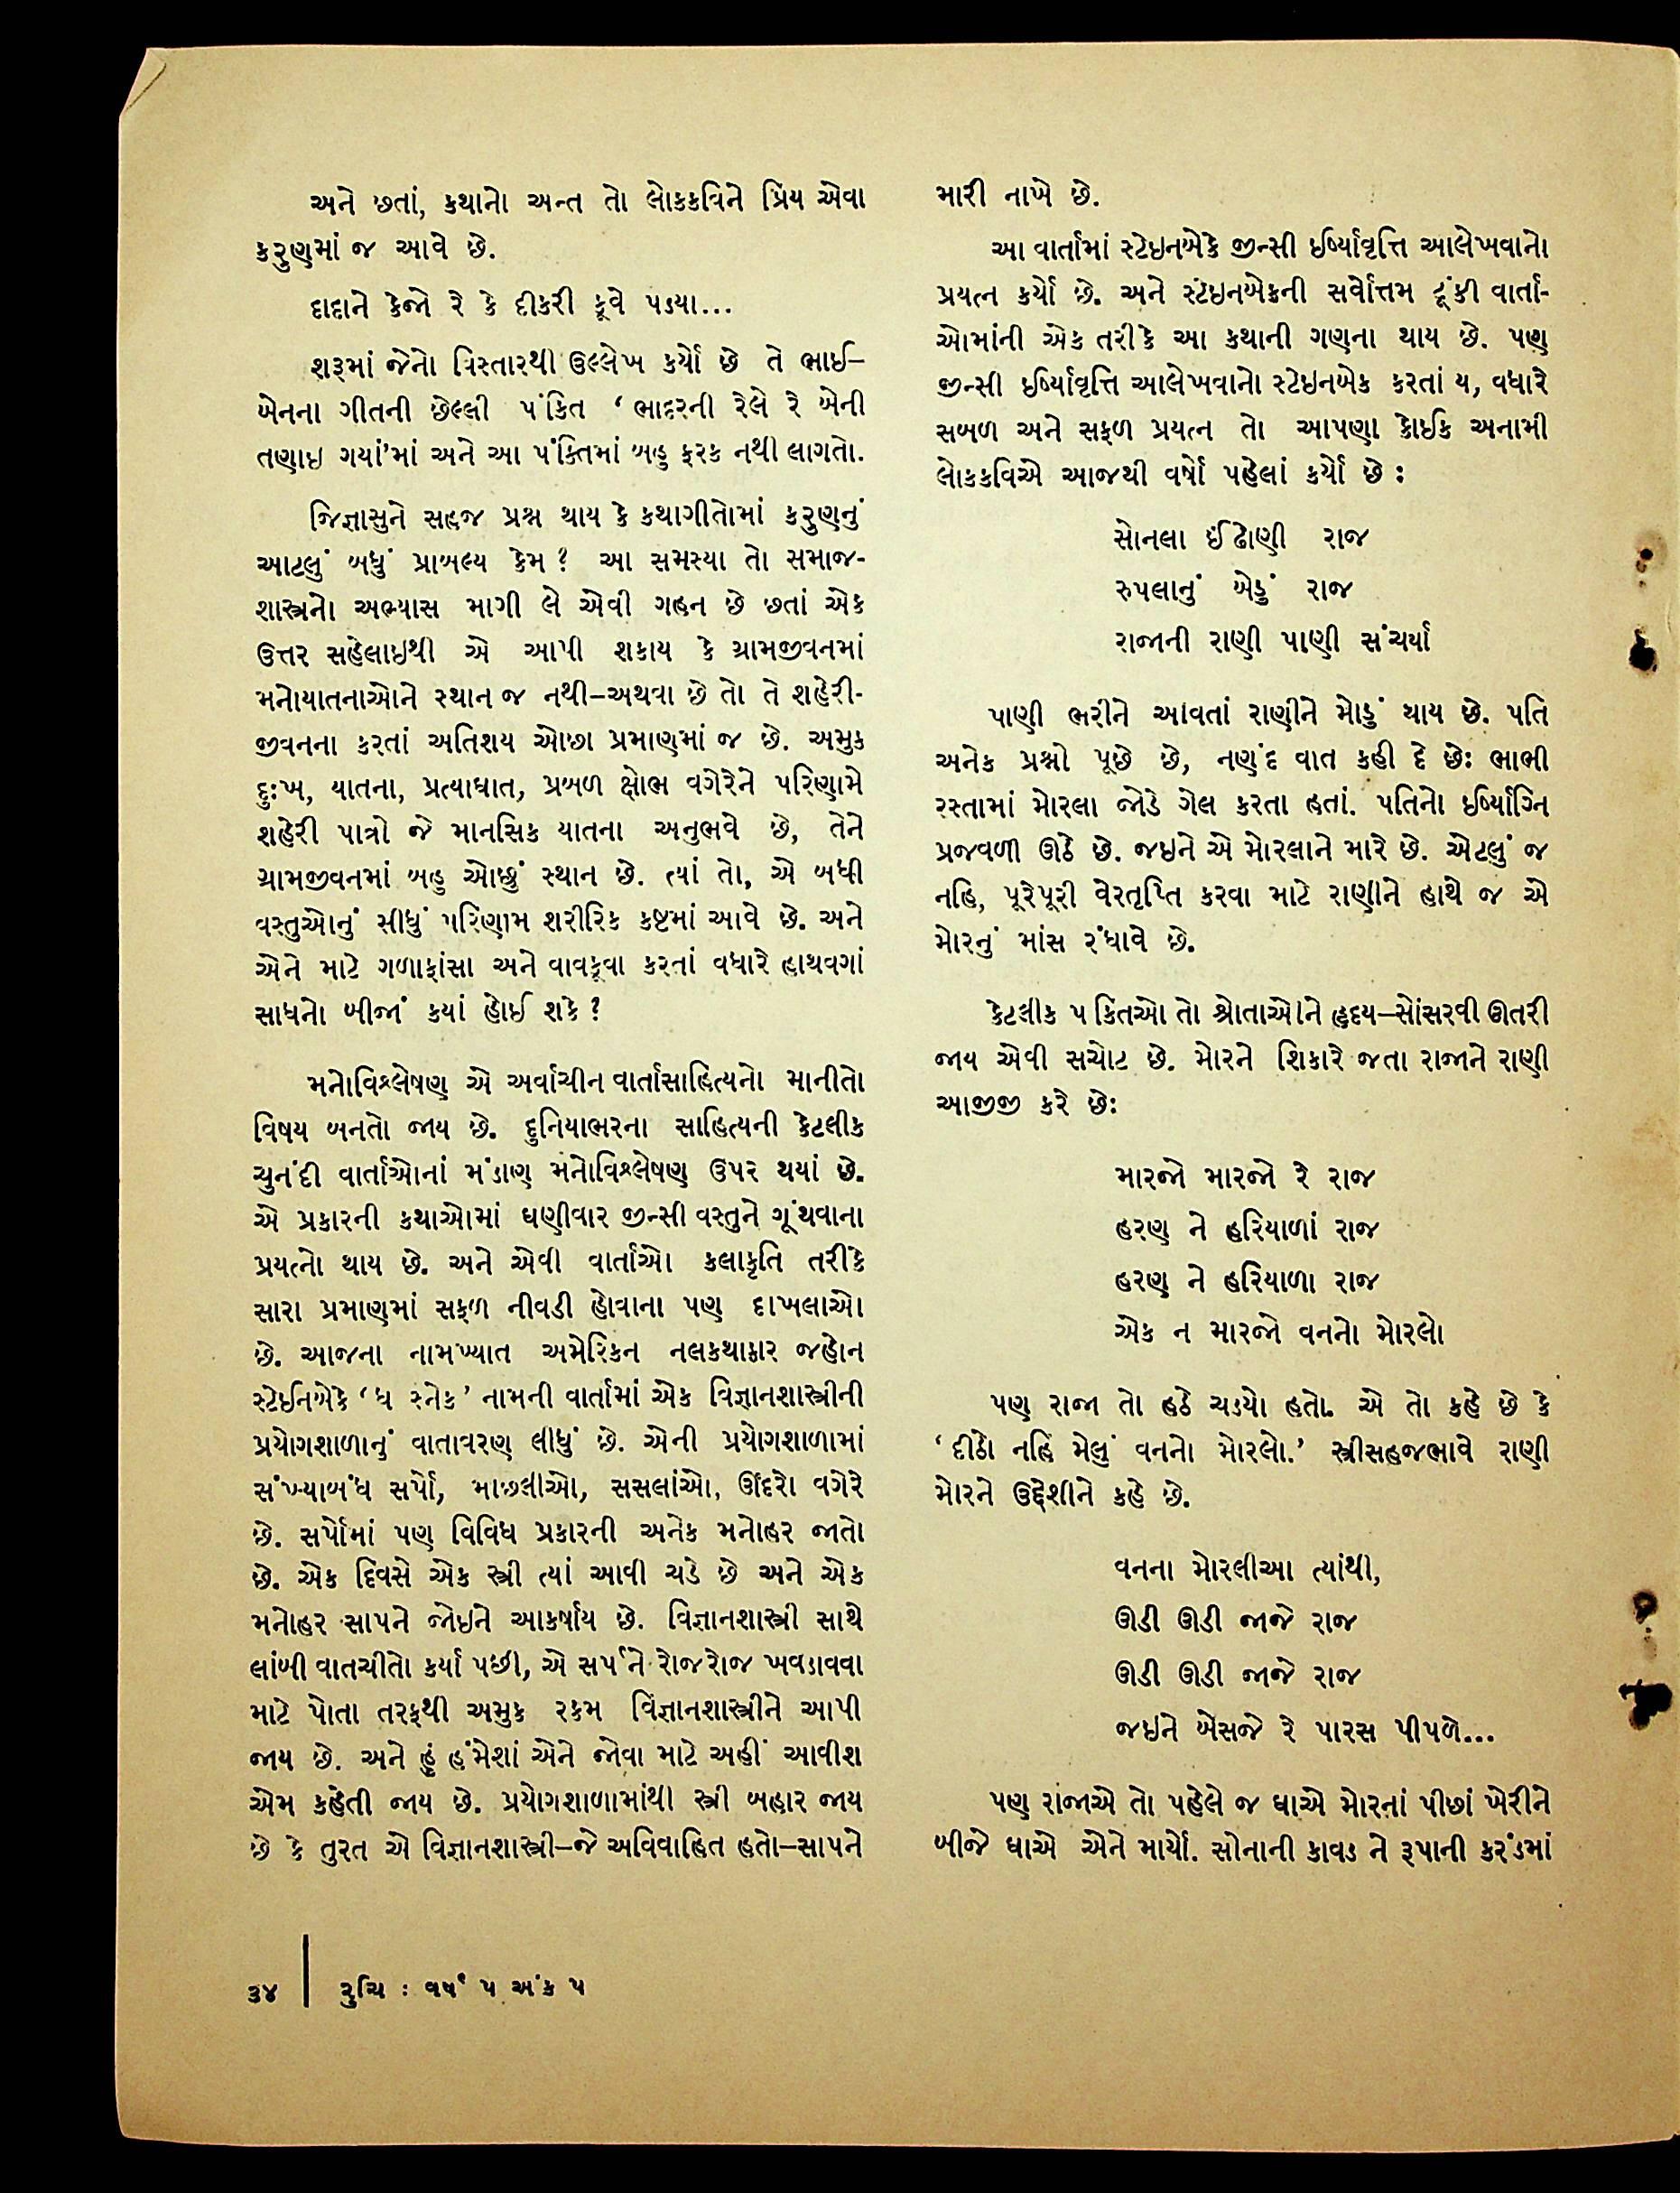 અને છતાં, કથાનો અન્ત તો લોકકવિને પ્રિય એવા
કરુણમાં જ આવે છે.
દાદાને કેજો રે કે દીકરી કૂવે પડ્યા...
શરૂમાં જેનો વિસ્તારથી ઉલ્લેખ કર્યો છે તે ભાઈ–
બેનના ગીતની છેલ્લી પંક્તિ ‘ ભાદરની રેલે રે બેની
તણાઇ ગયાં’માં અને આ પંક્તિમાં બહુ ફરક નથી લાગતો.
જિજ્ઞાસુને સહજ પ્રશ્ન થાય કે કથાગીતોમાં કરુણનું
આટલું બધું પ્રાબલ્ય કેમ? આ સમસ્યા તો સમાજ-
શાસ્ત્રનો અભ્યાસ માગી લે એવી ગહન છે છતાં એક
ઉત્તર સહેલાઇથી એ આપી શકાય કે ગ્રામજીવનમાં
મનોયાતનાઓને સ્થાન જ નથી–અથવા છે તો તે શહેરી-
જીવનના કરતાં અતિશય ઓછા પ્રમાણમાં જ છે. અમુક
દુઃખ, યાતના, પ્રત્યાઘાત, પ્રબળ ક્ષોભ વગેરેને પરિણામે
શહેરી પાત્રો જે માનસિક યાતના અનુભવે છે, તેને
ગ્રામજીવનમાં બહુ ઓછું સ્થાન છે. ત્યાં તો, એ બધી
વસ્તુઓનું સીધું પરિણામ શરીરિક કષ્ટમાં આવે છે. અને
એને માટે ગળાફાંસા અને વાવકૂવા કરતાં વધારે હાથવગાં
સાધનો બીજાં કયાં હોઈ શકે?
મનોવિશ્લેષણ એ અર્વાચીન વાર્તાસાહિત્યનો માનીતો
વિષય બનતો જાય છે. દુનિયાભરના સાહિત્યની કેટલીક
ચુનંદી વાર્તાઓનાં મંડાણ મનોવિશ્લેષણ ઉપર થયાં છે.
એ પ્રકારની કથાઓમાં ઘણીવાર જીન્સી વસ્તુને ગૂંથવાના
પ્રયત્નો થાય છે. અને એવી વાર્તાઓ કલાકૃતિ તરીકે
સારા પ્રમાણમાં સફળ નીવડી હોવાના પણ દાખલાઓ
છે. આજના નામખ્યાત અમેરિકન નલકથાકાર જ્હોન
સ્ટેઈનબેકે ‘ધ સ્નેક’ નામની વાર્તામાં એક વિજ્ઞાનશાસ્ત્રીની
પ્રયોગશાળાનું વાતાવરણ લીધું છે. એની પ્રયોગશાળામાં
સંખ્યાબંધ સર્પો, માછલીઓ, સસલાંઓ, ઊંદરો વગેરે
છે. સર્પોમાં પણ વિવિધ પ્રકારની અનેક મનોહર જાતો
છે. એક દિવસે એક સ્ત્રી ત્યાં આવી ચડે છે અને એક
મનોહર સાપને જોઇને આકર્ષાય છે. વિજ્ઞાનશાસ્ત્રી સાથે
લાંબી વાતચીતો કર્યા પછી, એ સર્પને રોજરોજ ખવડાવવા
માટે પોતા તરફથી અમુક રકમ વિજ્ઞાનશાસ્ત્રીને આપી
જાય છે. અને હું હંમેશાં એને જોવા માટે અહીં આવીશ
એમ કહેતી જાય છે. પ્રયોગશાળામાંથી સ્ત્રી બહાર જાય
છે કે તુરત એ વિજ્ઞાનશાસ્ત્રી–જે અવિવાહિત હતો–સાપને
મારી નાખે છે.
આ વાર્તામાં સ્ટેઇનબેકે જીન્સી ઇર્ષ્યાવૃત્તિ આલેખવાનો
પ્રયત્ન કર્યો છે. અને સ્ટેઇનબેકની સર્વોત્તમ ટૂંકી વાર્તા-
ઓમાંની એક તરીકે આ કથાની ગણના થાય છે. પણ
જીન્સી ઇર્ષ્યાવૃત્તિ આલેખવાનો સ્ટેઇનબેક કરતાં ય, વધારે
સબળ અને સફળ પ્રયત્ન તો આપણા કોઈક અનામી
લોકકવિએ આજથી વર્ષો પહેલાં કર્યો છે :
સોનલા ઈંઢોણી રાજ
રુપલાનું બેડું રાજ
રાજાની રાણી પાણી સંચર્યાં
પાણી ભરીને આવતાં રાણીને મોડું થાય છે. પતિ
અનેક પ્રશ્નો પૂછે છે, નણંદ વાત કહી દે છેઃ ભાભી
રસ્તામાં મોરલા જોડે ગેલ કરતા હતાં. પતિનો ઇર્ષ્યાગ્નિ
પ્રજવળી ઊઠે છે. જઇને એ મોરલાને મારે છે. એટલું જ
નહિ, પૂરેપૂરી વેરતૃપ્તિ કરવા માટે રાણીને હાથે જ એ
મોરનું માંસ રંધાવે છે.
કેટલીક પંક્તિઓ તો શ્રોતાઓને હૃદય–સોંસરવી ઊતરી
જાય એવી સચોટ છે. મોરને શિકારે જતા રાજાને રાણી
આજીજી કરે છેઃ
મારજો મારજો રે રાજ
હરણ ને હરિયાળાં રાજ
હરણ ને હરિયાળા રાજ
એક ન મારજો વનનો મોરલો
પણ રાજા તો હઠે ચડ્યો હતો. એ તો કહે છે કે
‘દીઠો નહિ મેલું વનનો મોરલો.’ સ્ત્રીસહજભાવે રાણી
મોરને ઉદ્દેશીને કહે છે.
વનના મોરલીઆ ત્યાંથી,
ઊડી ઊડી જાજે રાજ
ઊડી ઊડી જાજે રાજ
જઇને બેસજે રે પારસ પીપળે...
પણ રાજાએ તો પહેલે જ ઘાએ મોરનાં પીછાં ખેરીને
બીજે ઘાએ એને માર્યો. સોનાની કાવડ ને રૂપાની કરંડમાં
૩૪ | રુચિ : વર્ષ ૫ અંક ૫